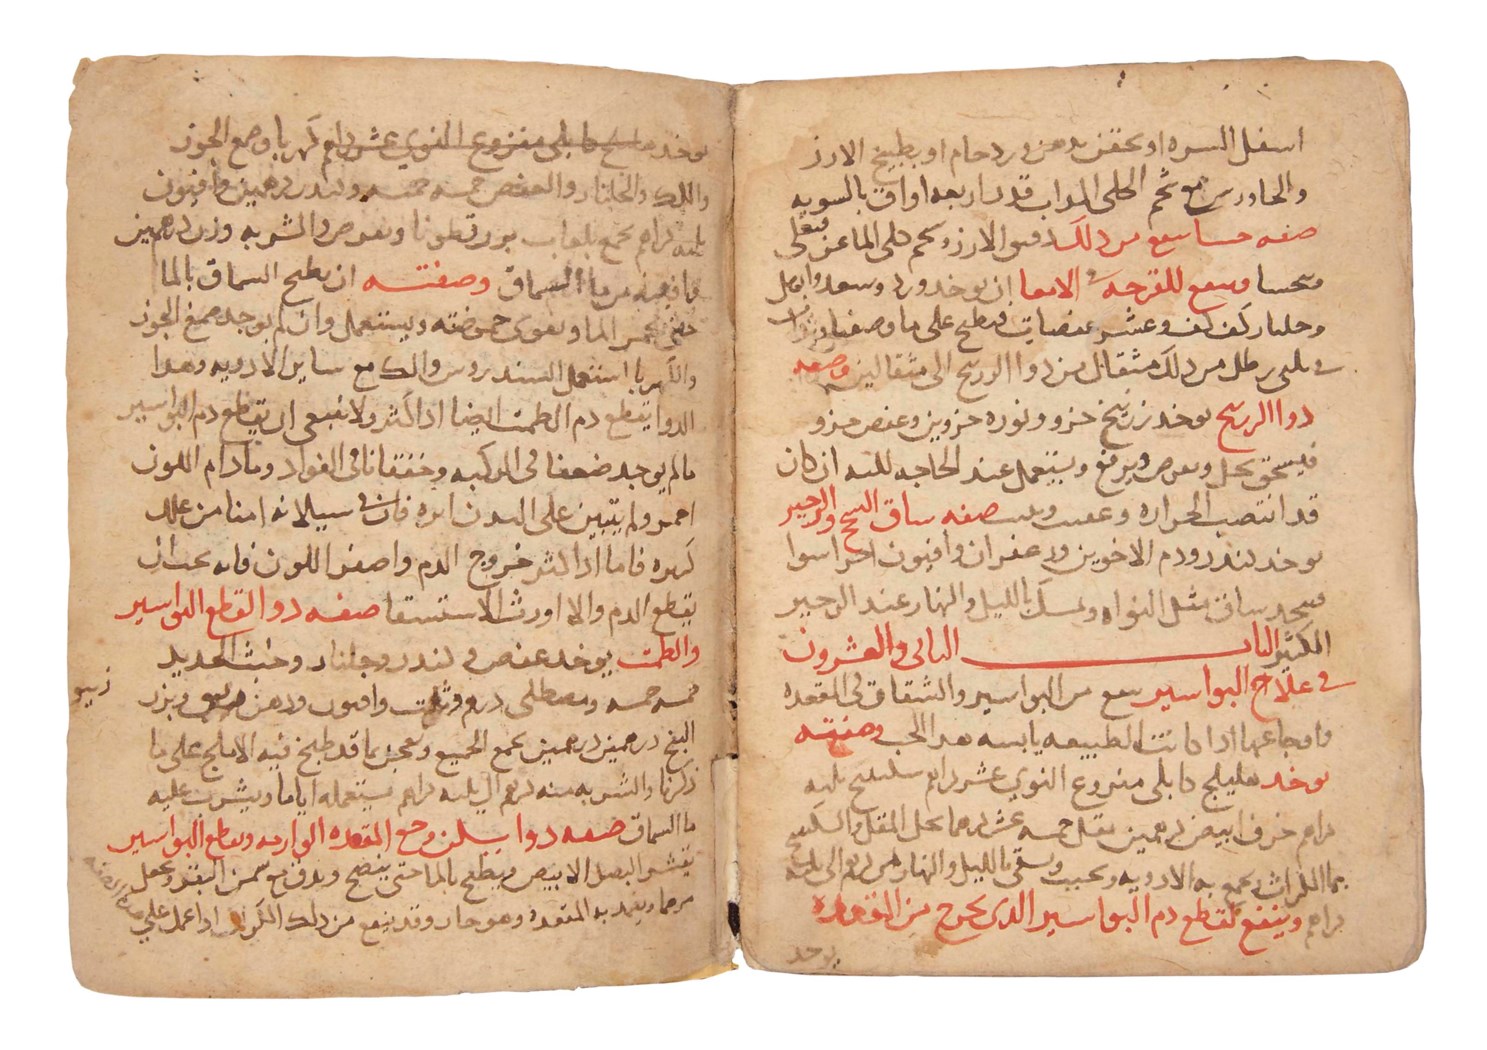 اسفل السره او بحقن بدهن ورد خام او بطبيخ الارز
والجاورس مع شحم الكلى المداب قدر اربعه اواق بالسويه
صفه حسا ينفع من دلك دقيق الارز وشحم كلى الماعز يغلى
ويتحسا وينفع للقرحه فى الامعا ان يوخد ورد وسعد
وجلنار كف كف وعشر عفصات فيطبخ على ما وصفنا
من دلك مثقال من دوا الزرنيخ الى مثقالين وصفه
دوا الزرنيخ يوخد زرنيخ جزو ونوره جزوين وعفص جزو
فيسحق بخل ويقرص ويرفع ويستعمل عند الحاجه اليه ان كان
قد انتصب الحراره صفه شياف السحج والزحير
يوخد كندر ودم الاخوين وزعفران وافيون اجزا سوا
فيتخد شياف مثل النواه ويمسك بالليل والنهار عند الزحير
الكثير الباب الثانى والعشرون
فى علاج البواسير ينفع من البواسير والشقاق فى المقعده
واوجاعها اذا كانت الطبيعه يابسه هدا الحب وصفته
يوخد هليلج كابلى منزوع النوى عشر دراهم سكبينج ثلثه
دراهم خرف ابيض درهمين مقل خمسه عشر درهما يحل المقل والسكبينج
بما الكراث ويجمع به الادويه ويحبب ويسقى بالليل والنهار من درهم الى ثلثه
دراهم وينفع لقطع دم البواسير الدى يخرج من المقعده
يوخد
يوخد هليلج كابلى منزوع النوى عشر دراهم كهربا وصمغ الجوز
واللك والجلنار والعفص خمسه خمسه وكندر درهمين وافيون
ثلثه دراهم يجمع بلعاب بزرقطونا ويقرص والشربه وزن درهمين
باوقيه من ما السماق وصفته ان يطبخ السماق بالما
حتى يحمر الما ويقوى حموضته ويستعمل وان لم يوجد صمغ الجوز
والكهربا استعمل السندروس واللك مع ساير الادويه وهدا
الدوا يقطع دم الطمث ايضا ادا كثر ولا ينبغى ان يقطع دم البواسير
ما لم يوجد ضعفا فى الركبه وخفقانا فى الفواد وما دام اللون
احمر ولم يتبين على البدن اثره فان فى سيلانه امنا من علل
كثيره فاما ادا كثر خروج الدم واصفر اللون فانه يجب ان
يقطع الدم والا اورث الاستسقا صفه دوا لقطع البواسير
والطمث يوخد عفص وكندر وجلنار وخبث الحديد
خمسه خمسه ومصطكى درهم وثلث وافيون وبزر
البنج درهمين درهمين يجمع الجميع ويعجن بما قد طبخ فيه الاملج على ما
دكرنا والشربه منه درهم الى ثلثه دراهم يستعمله اياما ويشرب عليه
ما السماق صفه دوا يسكن وجع المقعده الوارمه ويقطع البواسير
يقشر البصل الابيض ويطبخ بالما حتى ينضج ويدق مع سمن البقر ويجعل
مرهما ويضمد به المقعده وهو حار وقد ينفع من دلك الكراث ادا عمل على
هده الصفه
زيبق